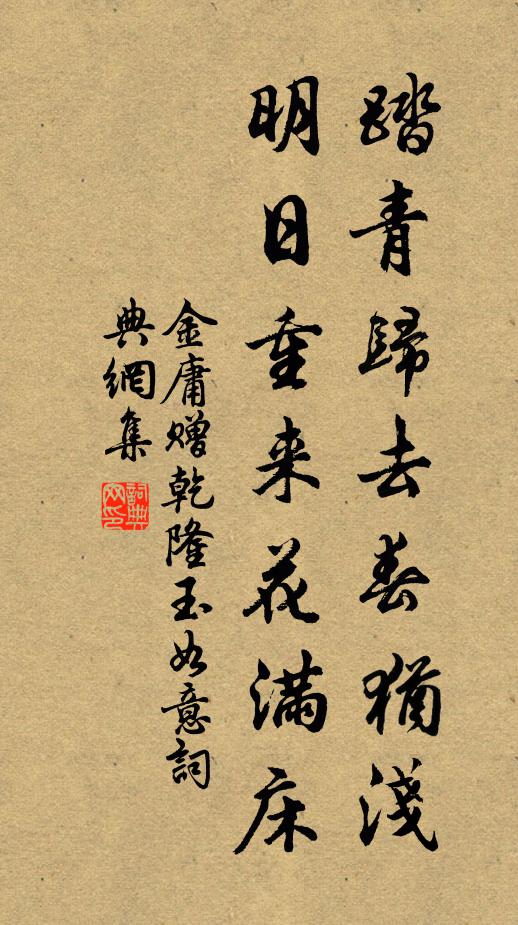 踏青歸去春猶淺
明日重来花滿床
金庸赠乾隆玉如意詞
典網集
詞典
网印